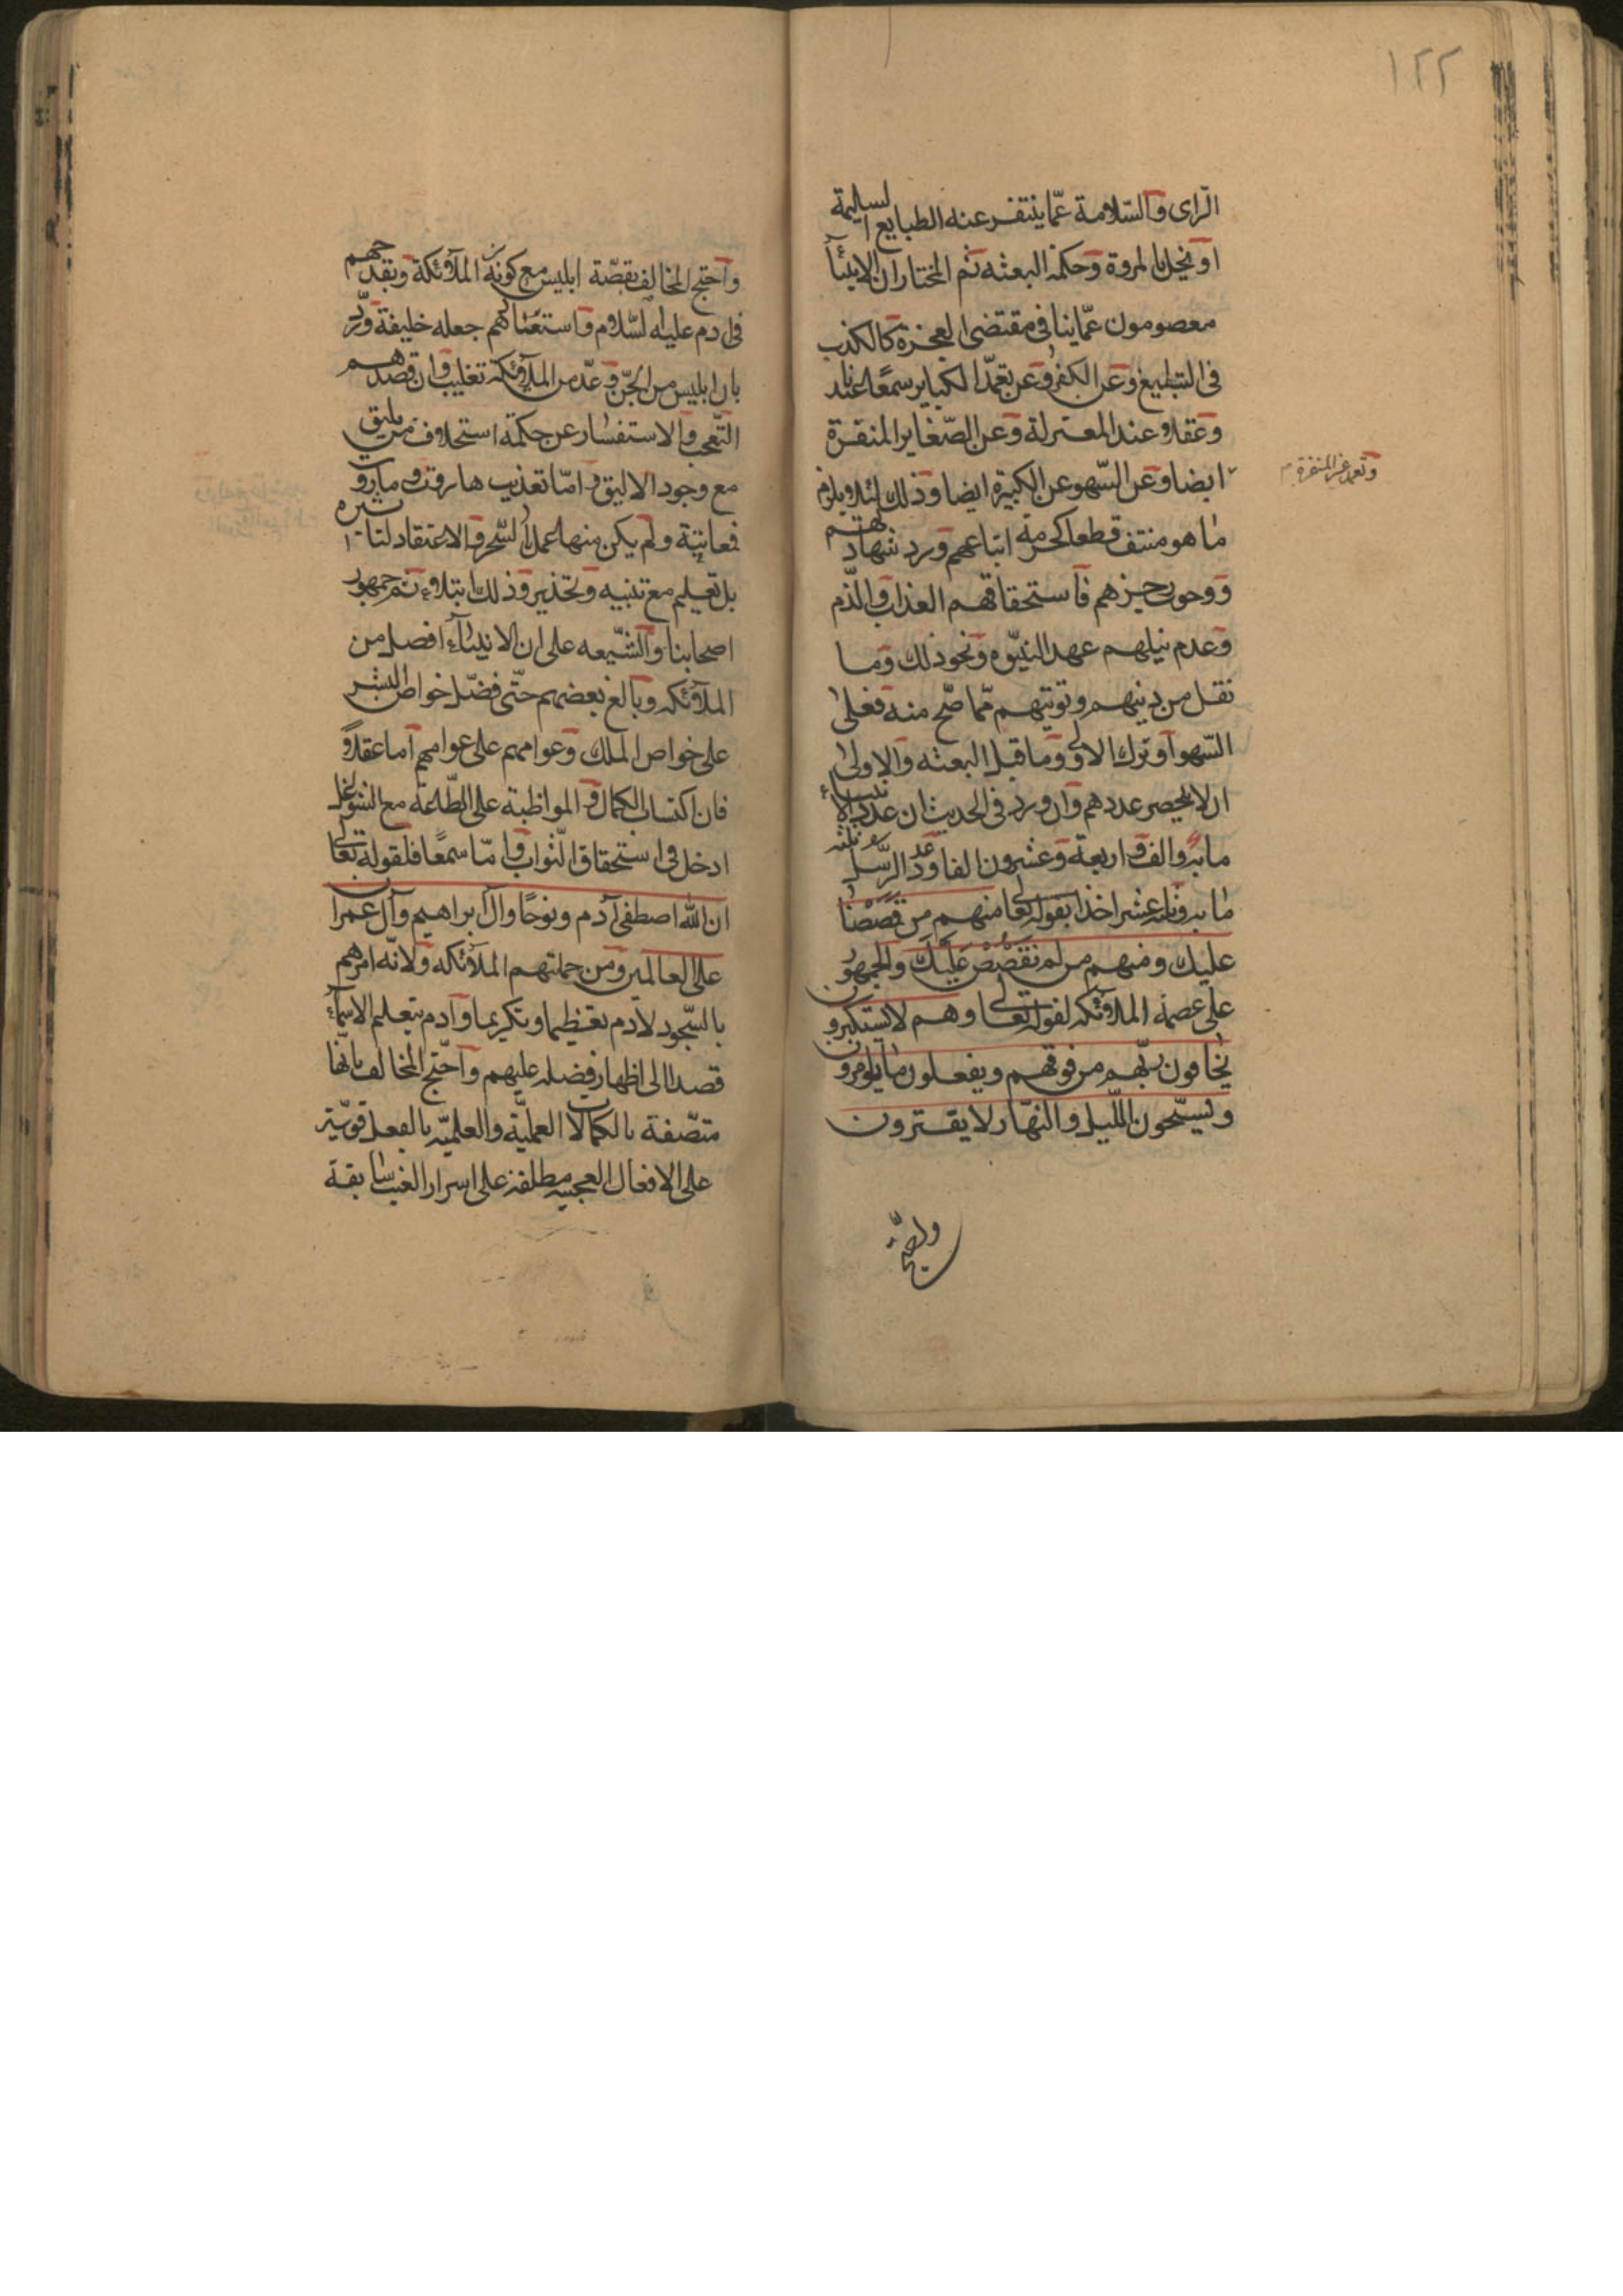 ١٢٢
الرّاى والسّلامة عمّا ينتفر عنه الطبايع السليمة
او يخلّ بالمروة وحكمة البعثه ثم المختار ان الانبيآء
معصومون عمّا ينافى مقتضى المعجزة كالكذب
فى التبليغ وعن الكفر وعن تعمّد الكباير سمعًا عندنا
وعقلا عند المعتزلة وعن الصّغاير المنفرة
وتعمد غير المنفرة
ايضا وعن السّهو عن الكبيرة ايضا وذلك لئلا يلزم
ما هو منتف قطعا كحرمة اتباعهم ورد شهادتهم
ووجوب زجرهم واستحقاقهم العذاب والذّم
وعدم نيلهم عهد النبوّه ونحو ذلك وما
نقل من ذنبهم وتوبتهم ممّا صحّ منه فعلى
السّهو او ترك الاولى وما قبل البعثه والاولى
ان لا يحصر عددهم وان ورد فى الحديث ان عدد الانبياء
مايه والف واربعة وعشرون الفا وعدد الرّسل ثلثه
مايه وثلثه عشر اخذا بقوله تعالى منهم من قَصَصْنا
عليك ومنهم من لم نَقْصُصْ عَلَيْكَ والجمهور
على عصمة الملائكه لقوله تعالى وهم لا يستكبرون
يخافون ربّهم من فوقهم ويفعلون ما يؤمرون
ويسبّحون اللّيل والنهّار لا يفترون
واحتجّ
واحتج المخالف بقصّة ابليس مع كونه من الملآئكة وبقدحهم
فى ادم عليه السّلام واستغنائهم جعله خليفة وردّ
بان ابليس من الجنّ وعدّ من الملآئكة تغليب وان قصدهم
التّعجب والاستفسار عن حكمة استخلاف من يليق
مع وجود الاليق وامّا تعذيب هاروت وماروت
فمعاتبة ولم يكن منهما عمل السّحر والاعتقاد لتاثيره
بل تعليم مع تنبيه وتحذير وذلك ابتلاء ثم جمهور
اصحابنا والشّيعه على ان الانبيآء افضل من
الملآئكه وبالغ بعضهم حتّى فضّل خواص البشر
على خواص الملك وعوامهم على عوامهم اما عقلاً
فان اكتساب الكمال والمواظبة على الطّاعة مع الشواغل
ادخل فى استحقاق الثّواب وامّا سمعًا فلقوله تعالى
ان الله اصطفى آدم ونوحًا وآل ابراهيم وآل عمران
على العالمين ومن جملتهم الملآئكه ولانّه امرهم
بالسّجود لآدم تعظيما وتكريما وآدم بتعليم الاسمآء
قصدا الى اظهار فضله عليهم واحتج المخالف بانّها
متصّفة بالكمالات العمليّة والعلميّه بالفعل قويّة
على الافعال العجيبه مطلقة على اسرار الغيب سابقة